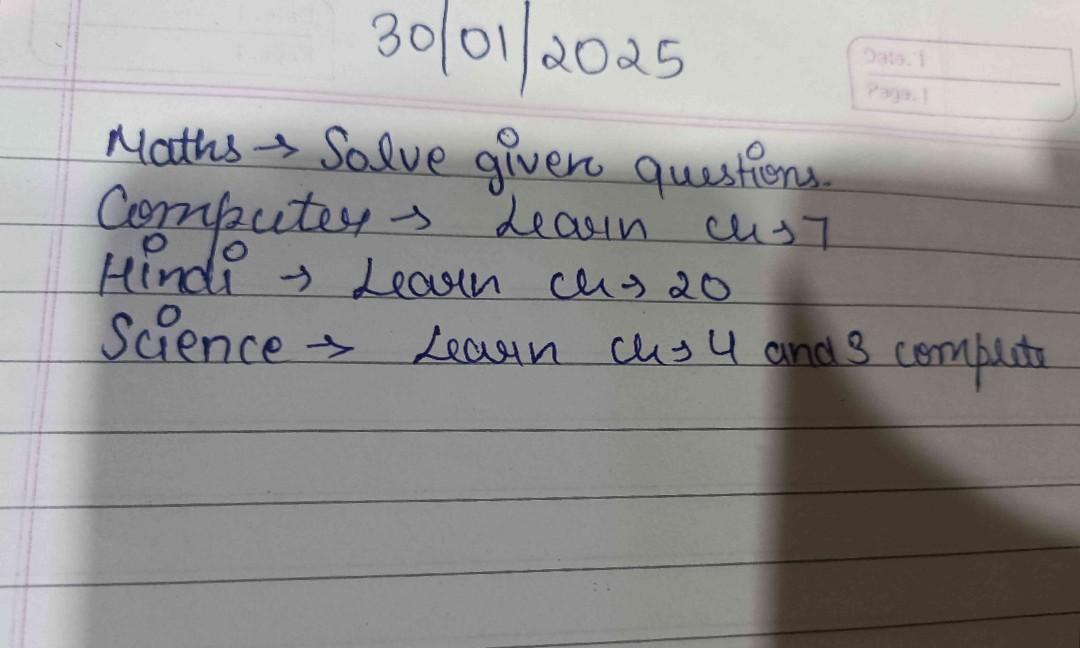 30/01/2025
Date. 1
Page. 1
Maths → Solve given questions.
Computer → Learn ch → 7
Hindi → Learn ch → 20
Science → Learn ch → 4 and 3 complete